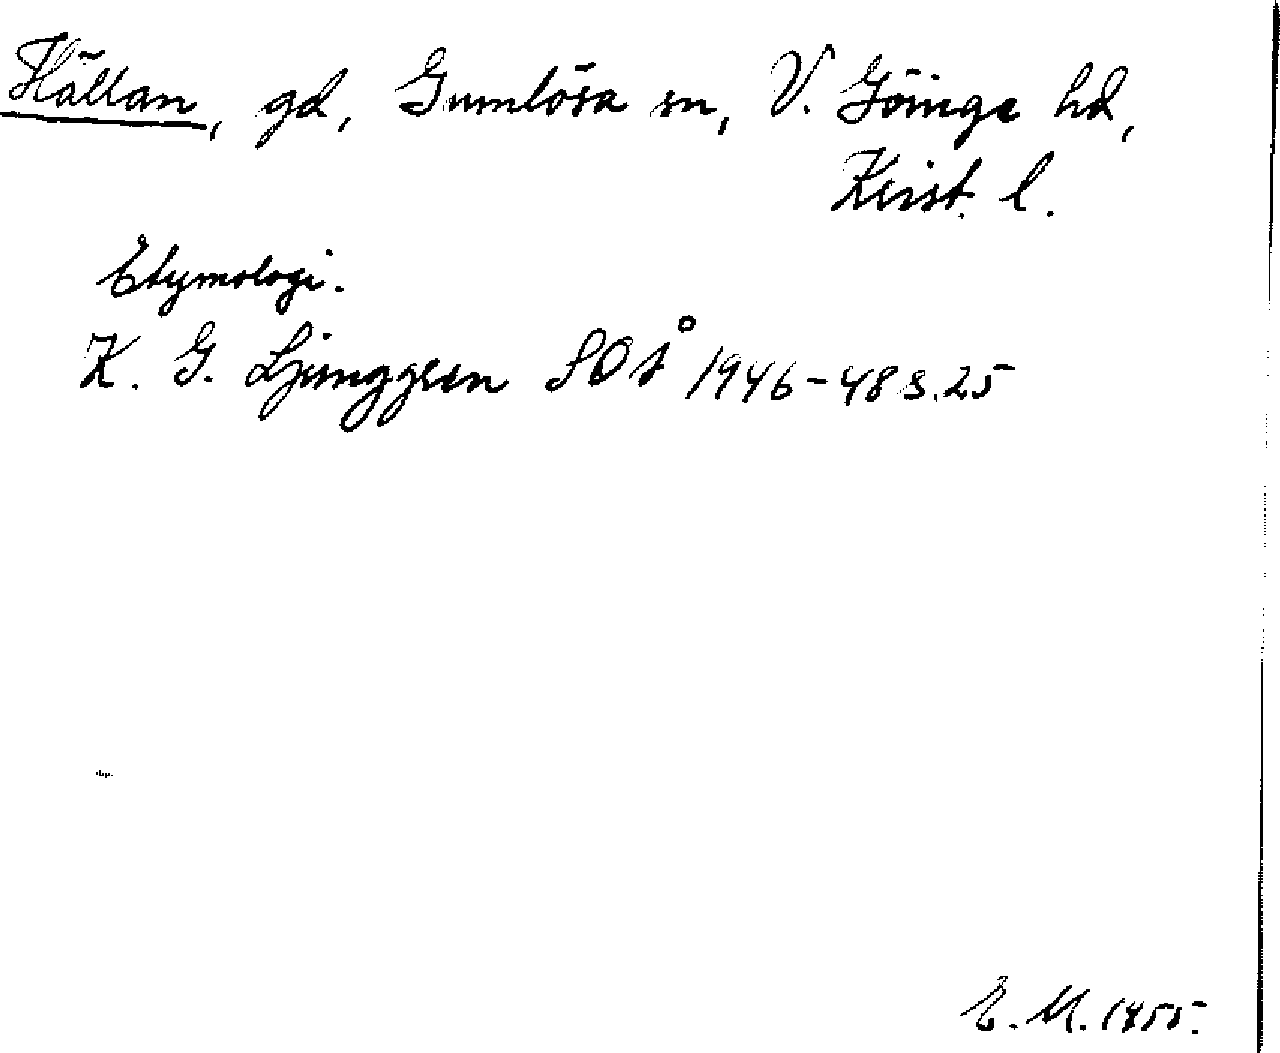 Hällan, gd, Gumlösa sn, V. Göinge hd,
Krist. l.
Etymologi.
K. G. Ljunggren SOÅ 1946-48 s.25
E. M. 1955.